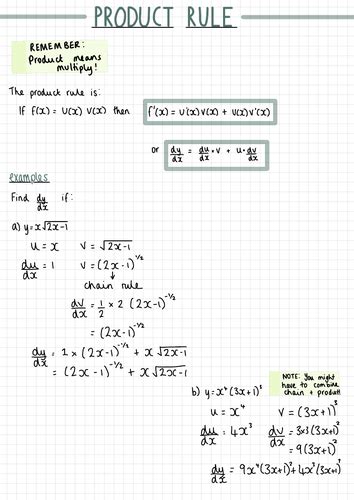 PRODUCT RULE
REMEMBER:
Product means
multiply!
The product rule is:
If f(x) = u(x) v(x) then f'(x) = u'(x)v(x) + u(x)v'(x)
or dy/dx = du/dx · v + u · dv/dx
examples
Find dy/dx if:
a) y = x√2x-1
u = x v = √2x-1
du/dx = 1 v = (2x-1)^-1/2
↓
chain rule
dv/dx = 1/2 × 2 (2x-1)^-1/2
= (2x-1)^-1/2
dy/dx = 1 × (2x-1)^-1/2 + x √2x-1
= (2x-1)^-1/2 + x √2x-1
NOTE: You might
have to combine
chain + product!
b) y = x⁴(3x+1)³
u = x⁴ v = (3x+1)³
du/dx = 4x³ dv/dx = 3×3(3x+1)²
= 9(3x+1)²
dy/dx = 9x⁴(3x+1)² + 4x³(3x+1)³